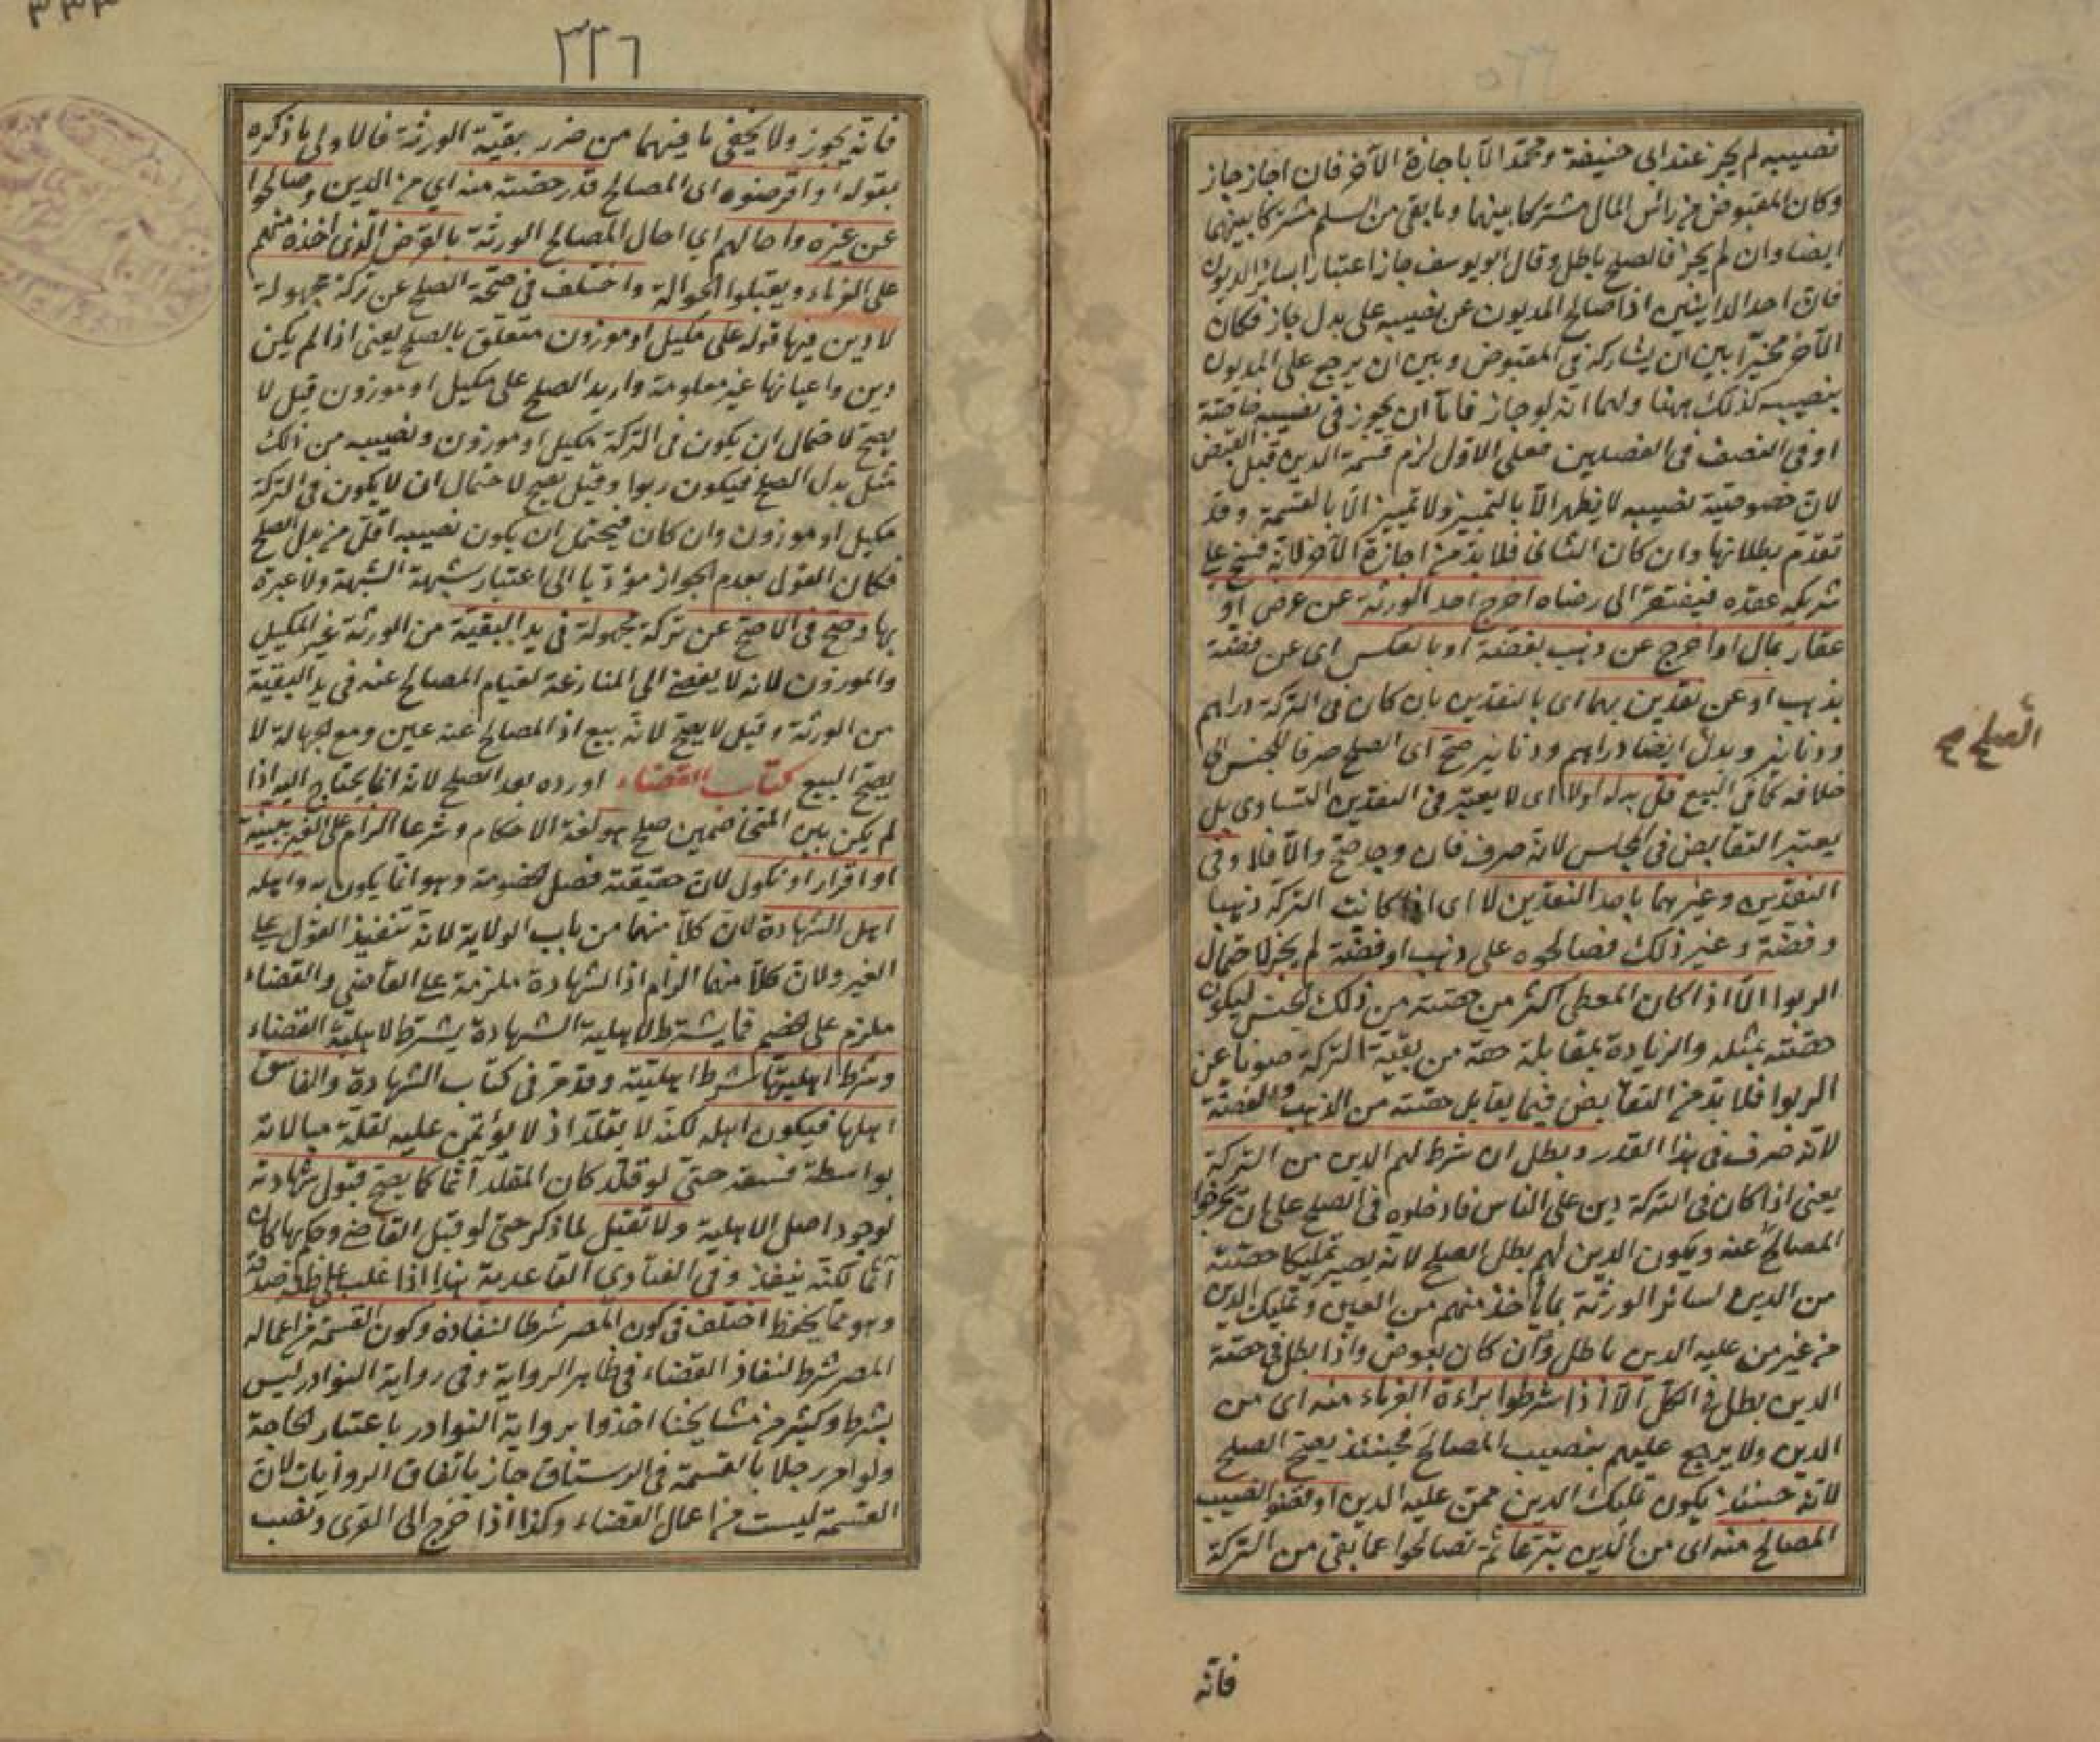 نصيبه لم يجز عند ابى حنيفة ومحمد الا باجازة الآخر فان اجاز جاز
وكان المقبوض من رأس المال مشتركا بينهما وما بقى من السلم مشتركا بينهما
ايضا وان لم يجز فالصلح باطل وقال ابو يوسف جاز اعتبارا بسائر الديون
فان احد الداينين اذا صالح المديون عن نصيبه على بدل جاز فكان
الآخر مخيرا بين ان يشاركه فى المقبوض وبين ان يرجع على المديون
بنصيبه كذلك ههنا ولهما انه لو جاز فاما ان يجوز فى نصيبه خاصة
او فى النصف فى النصيبين فعلى الاول لزم قسمة الدين قبل القبض
لان خصوصية نصيبه لا يظهر الا بالتمييز ولا تمييز الا بالقسمة وقد
تقدم بطلانها وان كان الثانى فلا بد من اجازة الآخر لانه فسخ على
شريكه عقده فيفتقر الى رضاه اخرج احد الورثة عن عرض او
عقار بمال او اخرج عن ذهب بفضة او بالعكس اى عن فضة
بذهب او عن نقدين بهما اى بالنقدين بان كان فى التركة دراهم
ودنانير وبدل ايضا دراهم ودنانير صح اى الصلح صرفا للجنس الى
خلافه كما فى البيع قل بدله اولا اى لا يعتبر فى النقدين التساوى بل
يعتبر التقابض فى المجلس لانه صرف فان وجد صح والا فلا وفى
النقدين وغيرهما باحد النقدين لا اى اذا كانت التركة ذهبا
وفضة وغير ذلك فصالحوه على ذهب او فضة لم يجز لاحتمال
الربوا الا اذا كان المعطى اكثر من حصته من ذلك الجنس ليكون
حصته بمثله والزيادة بمقابلة حقه من بقية التركة صونا عن
الربوا فلا بد من التقابض فيما يقابل حصته من الذهب والفضة
لانه صرف فى هذا القدر وبطل ان شرط لهم الدين من التركة
يعنى اذا كان فى التركة دين على الناس فادخلوه فى الصلح على ان يخرجوا
المصالح عنه ويكون الدين لهم بطل الصلح لانه يصير تمليكا حصته
من الدين لسائر الورثة بما يأخذ منهم من العين وتمليك الدين
من غير من عليه الدين باطل وان كان بعوض واذا بطل فى حصة
الدين بطل فى الكل الا اذا شرطوا براءة الغرماء منه اى من
الدين ولا يرجع عليهم بنصيب المصالح فحينئذ يصح الصلح
لانه حينئذ يكون تمليك الدين ممن عليه الدين او قضوا نصيب
المصالح منه اى من الدين تبرعا ثم تصالحوا عما بقى من التركة
الصلح صح
فانه
٣٣٦
فانه يجوز ولا يخفى ما فيهما من ضرر بقية الورثة فالاولى ما ذكره
بقوله او اقرضوه اى المصالح قدر حصته منه اى من الدين وصالحوا
عن غيره واحالهم اى احال المصالح الورثة بالقرض الذى اخذه منهم
على الغرماء ويقبلوا الحوالة واختلف فى صحة الصلح عن تركة مجهولة
لا دين فيها قوله على مكيل او موزون متعلق بالصلح يعنى اذا لم يكن
دين واعيانها غير معلومة واريد الصلح على مكيل او موزون قيل لا
يصح لاحتمال ان يكون فى التركة مكيل او موزون ونصيبه من ذلك
مثل بدل الصلح فيكون ربوا وقيل يصح لاحتمال ان لا يكون فى التركة
مكيل او موزون وان كان فيحتمل ان يكون نصيبه اقل من بدل الصلح
فكان القول بعدم الجواز مؤديا الى اعتبار شبهة الشبهة ولا عبرة
بها وصح فى الاصح عن تركة مجهولة فى يد البقية من الورثة غير المكيل
والموزون لانه لا يفضى الى المنازعة لقيام المصالح عنه فى يد البقية
من الورثة وقيل لا يصح لانه بيع اذ المصالح عنه عين ومع الجهالة لا
يصح البيع كتاب القضاء اورده بعد الصلح لانه انما يحتاج اليه اذا
لم يكن بين المتخاصمين صلح هو لغة الاحكام وشرعا الزام على الغير ببينة
او اقرار او نكول لان حقيقته فصل الخصومة وهو انما يكون به واهله
اهل الشهادة لان كلا منهما من باب الولاية لانه تنفيذ القول على
الغير ولان كلا منهما الزام اذ الشهادة ملزمة على القاضى والقضاء
ملزم على الخصم فما يشترط لاهلية الشهادة يشترط لاهلية القضاء
وشرط اهليتها شرط اهليته وقد مر فى كتاب الشهادة والفاسق
اهلها فيكون اهله لكنه لا يقلد اذ لا يؤتمن عليه لقلة مبالاته
بواسطة فسقه حتى لو قلد كان المقلد آثما كما يصح قبول شهادته
لوجود اصل الاهلية ولا تقبل لما ذكر حتى لو قبل القاضى وحكم بها كان
آثما لكنه ينفذ وفى الفتاوى القاعدية هذا اذا غلب على ظنه صدقه
وهو مما يحفظ اختلف فى كون المصر شرطا لنفاذه وكون القسمة من اعماله
المصر شرط لنفاذ القضاء فى ظاهر الرواية وفى رواية النوادر ليس
بشرط وكثير من مشايخنا اخذوا برواية النوادر باعتبار الحاجة
ولو امر رجلا بالقسمة فى الرستاق جاز باتفاق الروايات لان
القسمة ليست من اعمال القضاء وكذا اذا خرج الى القرى ونصب